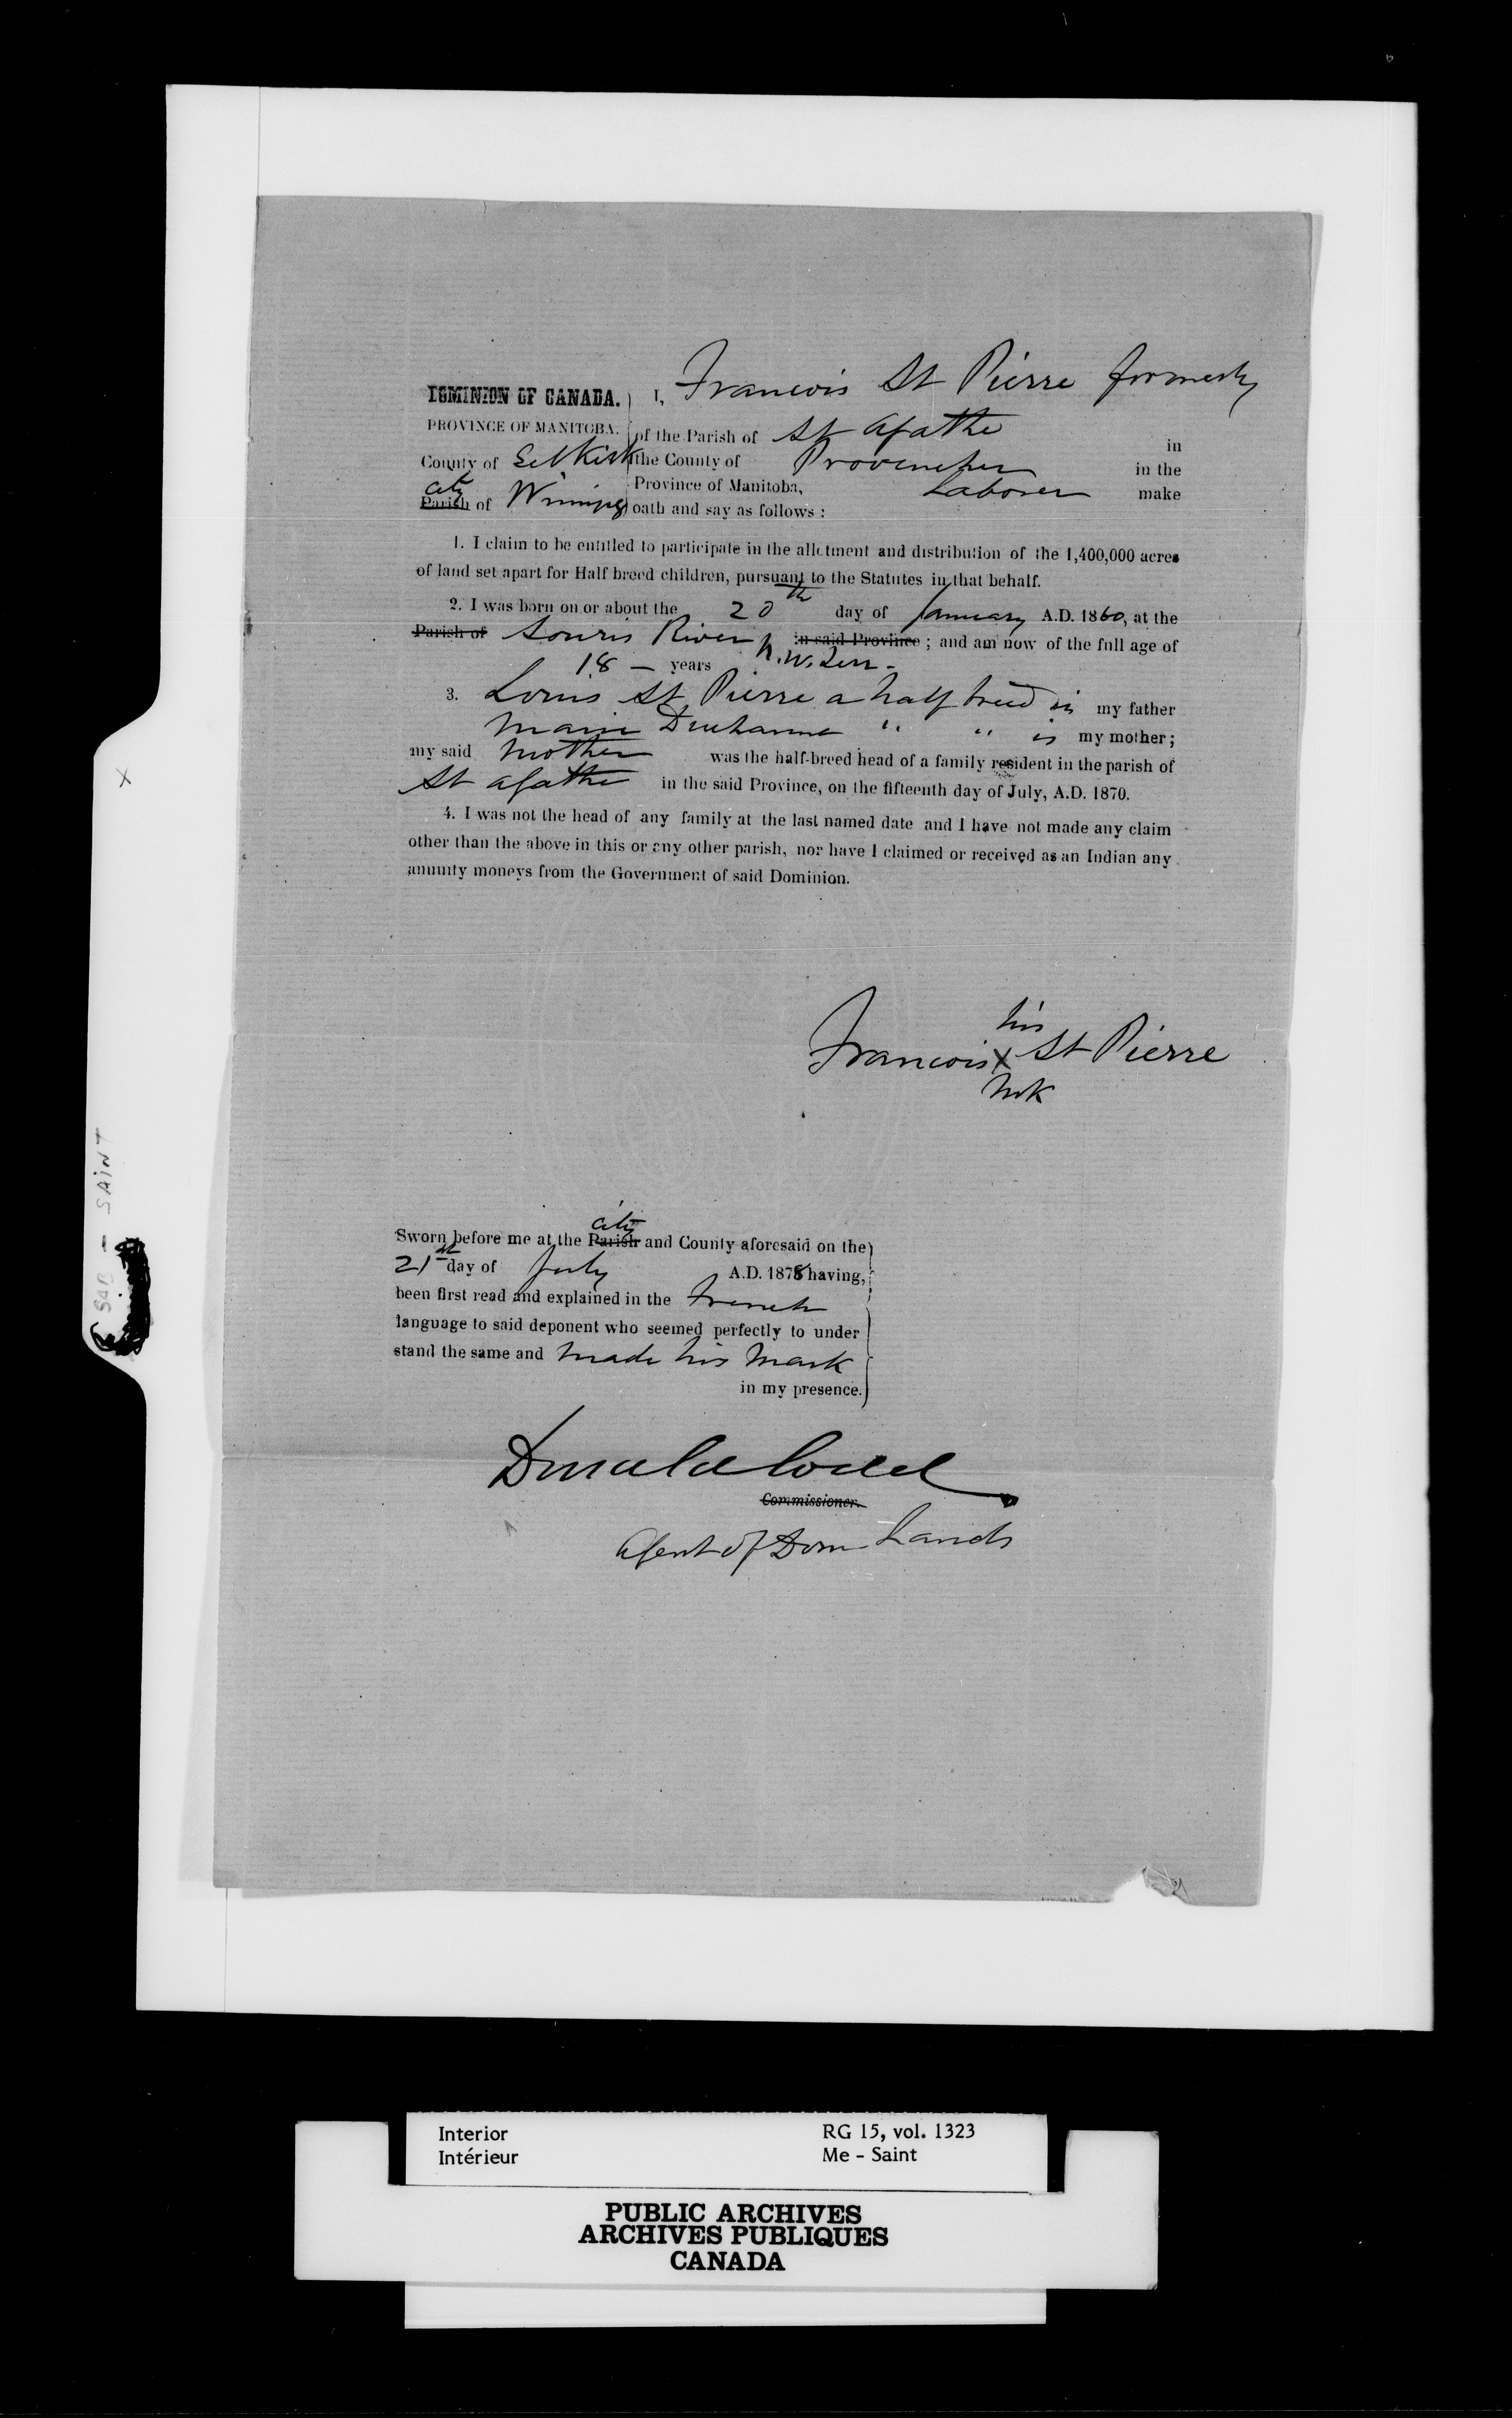 DOMINION OF CANADA. I, Francois St Pierre formerly
PROVINCE OF MANITOBA. of the Parish of St Agathe in
County of Selkirk the County of Provencher in the
City
Parish of Winnipeg Province of Manitoba, Laborer make
oath and say as follows :
1. I claim to be entitled to participate in the allotment and distribution of the 1,400,000 acres
of land set apart for Half breed children, pursuant to the Statutes in that behalf.
2. I was born on or about the 20th day of January A.D. 1860, at the
Parish of Souris River in said Province ; and am now of the full age of
18 — years N.W. Terr.
3. Louis St Pierre a half breed is my father
Marie Ducharme " " is my mother;
my said mother was the half-breed head of a family resident in the parish of
St Agathe in the said Province, on the fifteenth day of July, A.D. 1870.
4. I was not the head of any family at the last named date and I have not made any claim
other than the above in this or any other parish, nor have I claimed or received as an Indian any
annuity moneys from the Government of said Dominion.
his
Francois X St Pierre
mk
City
Sworn before me at the Parish and County aforesaid on the
21st day of July A.D. 1878 having,
been first read and explained in the French
language to said deponent who seemed perfectly to under
stand the same and made his mark
in my presence.
Donald Codd
Commissioner.
Agent of Dom Lands
X
SAB - SAINT
Interior RG 15, vol. 1323
Intérieur Me - Saint
PUBLIC ARCHIVES
ARCHIVES PUBLIQUES
CANADA